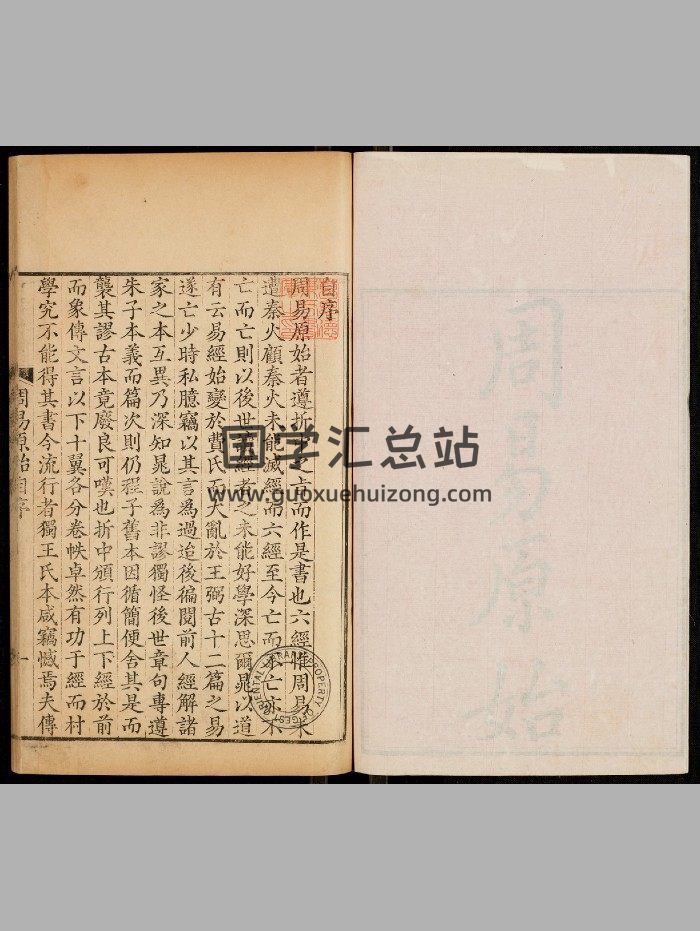 自序
周易原始者遵折中之㫖而作是書也六經惟周易未
遭秦火顧秦火未能滅經而六經至今亡而不亡亦不
亡而亡則以後世讀經者之未能好學深思爾晁以道
有云易經始變於費氏而大亂於王弼古十二篇之易
遂亡少時私臆竊以其言為過迨後徧閱前人經解諸
家之本互異乃深知晁說爲非謬獨怪後世章句專遵
朱子本義而篇次則仍程子舊本因循簡便舍其是而
襲其謬古本竟廢良可嘆也折中頒行列上下經於前
而彖傳文言以下十翼各分卷帙卓然有功于經而村
學究不能得其書今流行者獨王氏本咸竊憾焉夫傳
周易原始自序
一
周易原始
国学汇总站
www.guoxuehuizong.com